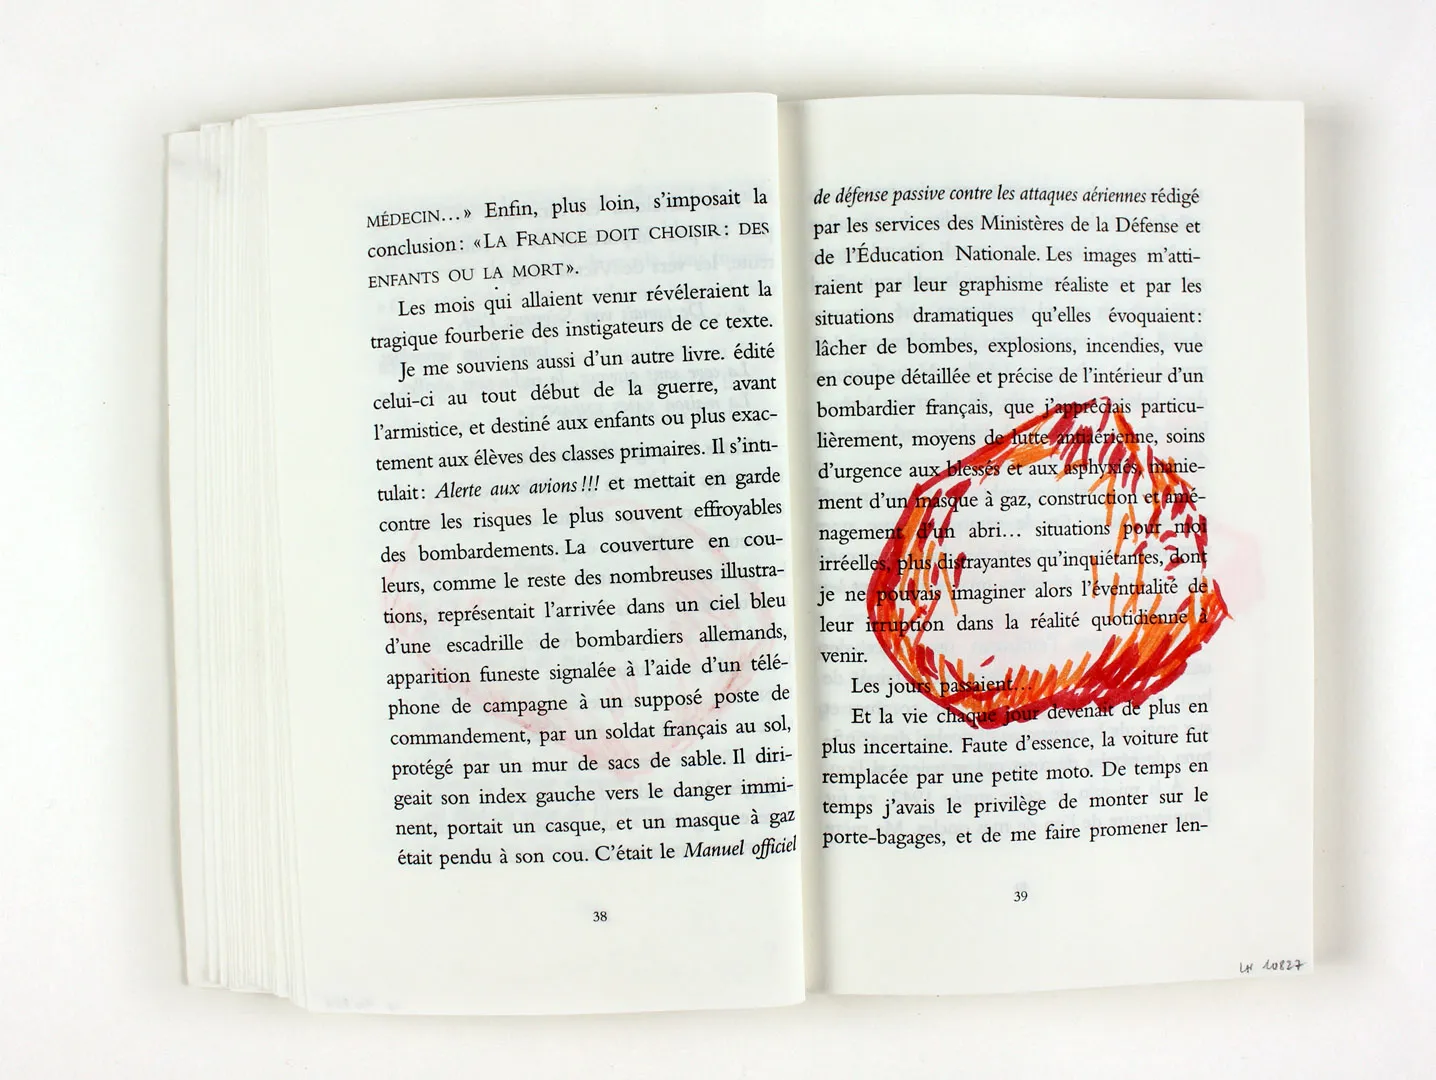 MÉDECIN...» Enfin, plus loin, s'imposait la
conclusion: «LA FRANCE DOIT CHOISIR: DES
ENFANTS OU LA MORT».
Les mois qui allaient venir révéleraient la
tragique fourberie des instigateurs de ce texte.
Je me souviens aussi d'un autre livre. édité
celui-ci au tout début de la guerre, avant
l'armistice, et destiné aux enfants ou plus exac-
tement aux élèves des classes primaires. Il s'inti-
tulait: Alerte aux avions!!! et mettait en garde
contre les risques le plus souvent effroyables
des bombardements. La couverture en cou-
leurs, comme le reste des nombreuses illustra-
tions, représentait l'arrivée dans un ciel bleu
d'une escadrille de bombardiers allemands,
apparition funeste signalée à l'aide d'un télé-
phone de campagne à un supposé poste de
commandement, par un soldat français au sol,
protégé par un mur de sacs de sable. Il diri-
geait son index gauche vers le danger immi-
nent, portait un casque, et un masque à gaz
était pendu à son cou. C'était le Manuel officiel
38
de défense passive contre les attaques aériennes rédigé
par les services des Ministères de la Défense et
de l'Éducation Nationale. Les images m'atti-
raient par leur graphisme réaliste et par les
situations dramatiques qu'elles évoquaient:
lâcher de bombes, explosions, incendies, vue
en coupe détaillée et précise de l'intérieur d'un
bombardier français, que j'appréciais particu-
lièrement, moyens de lutte antiaérienne, soins
d'urgence aux blessés et aux asphyxiés, manie-
ment d'un masque à gaz, construction et amé-
nagement d'un abri... situations pour moi
irréelles, plus distrayantes qu'inquiétantes, dont
je ne pouvais imaginer alors l'éventualité de
leur irruption dans la réalité quotidienne à
venir.
Les jours passaient...
Et la vie chaque jour devenait de plus en
plus incertaine. Faute d'essence, la voiture fut
remplacée par une petite moto. De temps en
temps j'avais le privilège de monter sur le
porte-bagages, et de me faire promener len-
39
10827